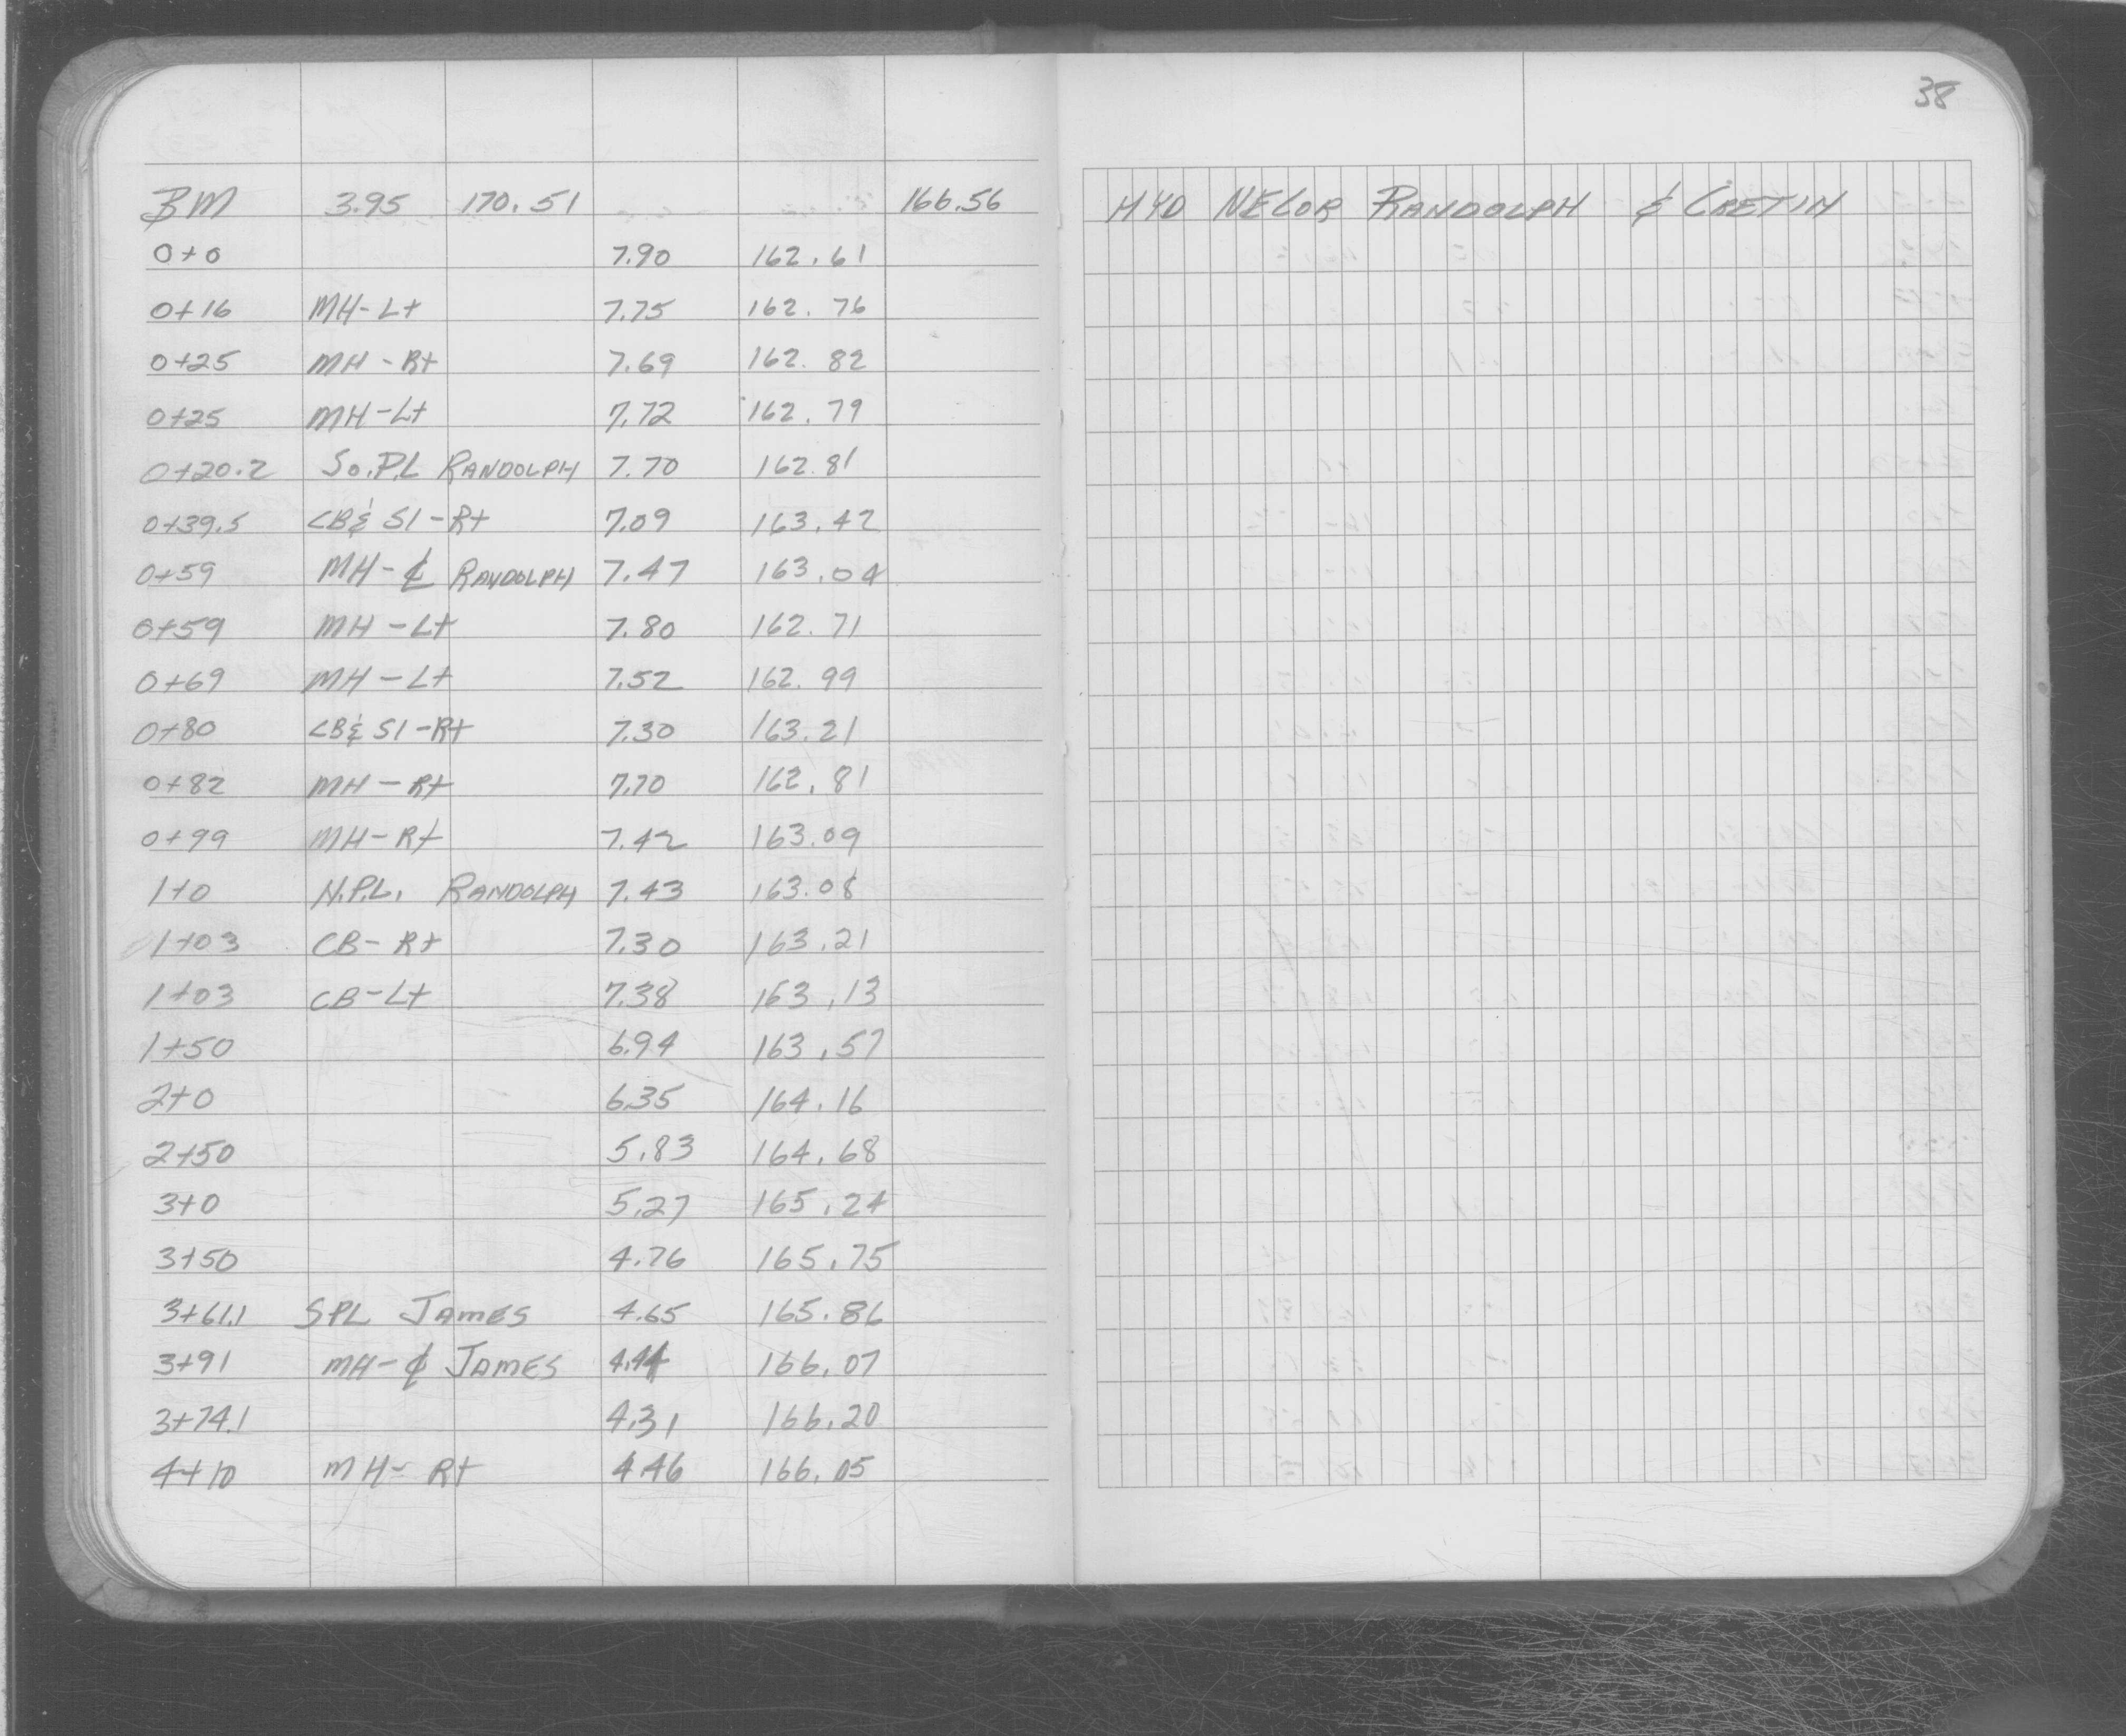 38
BM 3.95 170.51 166.56 HYD NE COR RANDOLPH & CRETIN
0+0 7.90 162.61
0+16 MH-Lt 7.75 162.76
0+25 MH-Rt 7.69 162.82
0+25 MH-Lt 7.72 162.79
0+20.2 So.P.L RANDOLPH 7.70 162.81
0+39.5 CB& SI-Rt 7.09 163.42
0+59 MH-℄ RANDOLPH 7.47 163.04
0+59 MH-Lt 7.80 162.71
0+69 MH-Lt 7.52 162.99
0+80 CB& SI-Rt 7.30 163.21
0+82 MH-Rt 7.70 162.81
0+99 MH-Rt 7.42 163.09
1+0 N.P.L. RANDOLPH 7.43 163.08
1+03 CB-Rt 7.30 163.21
1+03 CB-Lt 7.38 163.13
1+50 6.94 163.57
2+0 6.35 164.16
2+50 5.83 164.68
3+0 5.27 165.24
3+50 4.76 165.75
3+61.1 SPL JAMES 4.65 165.86
3+91 MH-℄ JAMES 4.44 166.07
3+74.1 4.31 166.20
4+10 MH-Rt 4.46 166.05